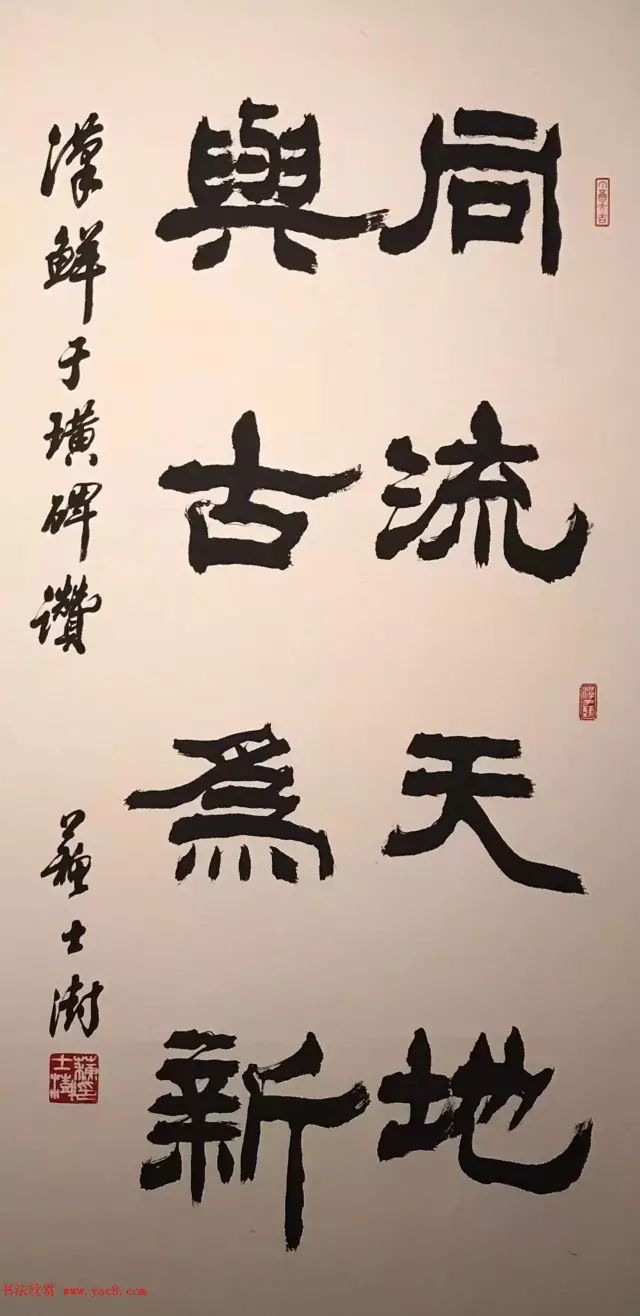 同流天地
與古爲新
漢鮮于璜碑讚
蘇士澍
书法欣赏 www.yac8.com